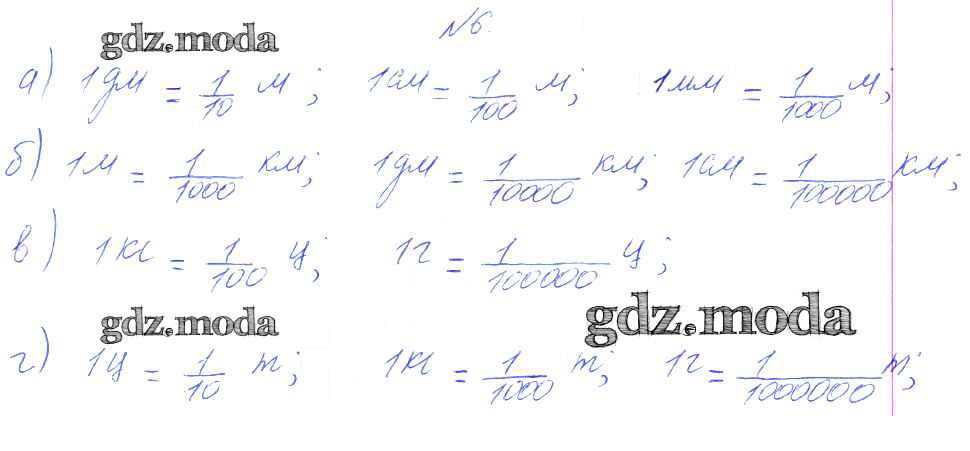 №6.
gdz.moda
а) 1дм = 1/10 м; 1см = 1/100 м; 1мм = 1/1000 м;
б) 1м = 1/1000 км; 1дм = 1/10000 км; 1см = 1/100000 км;
в) 1кг = 1/100 ц; 1г = 1/100000 ц;
gdz.moda gdz.moda
г) 1ц = 1/10 т; 1кг = 1/1000 т; 1г = 1/1000000 т;